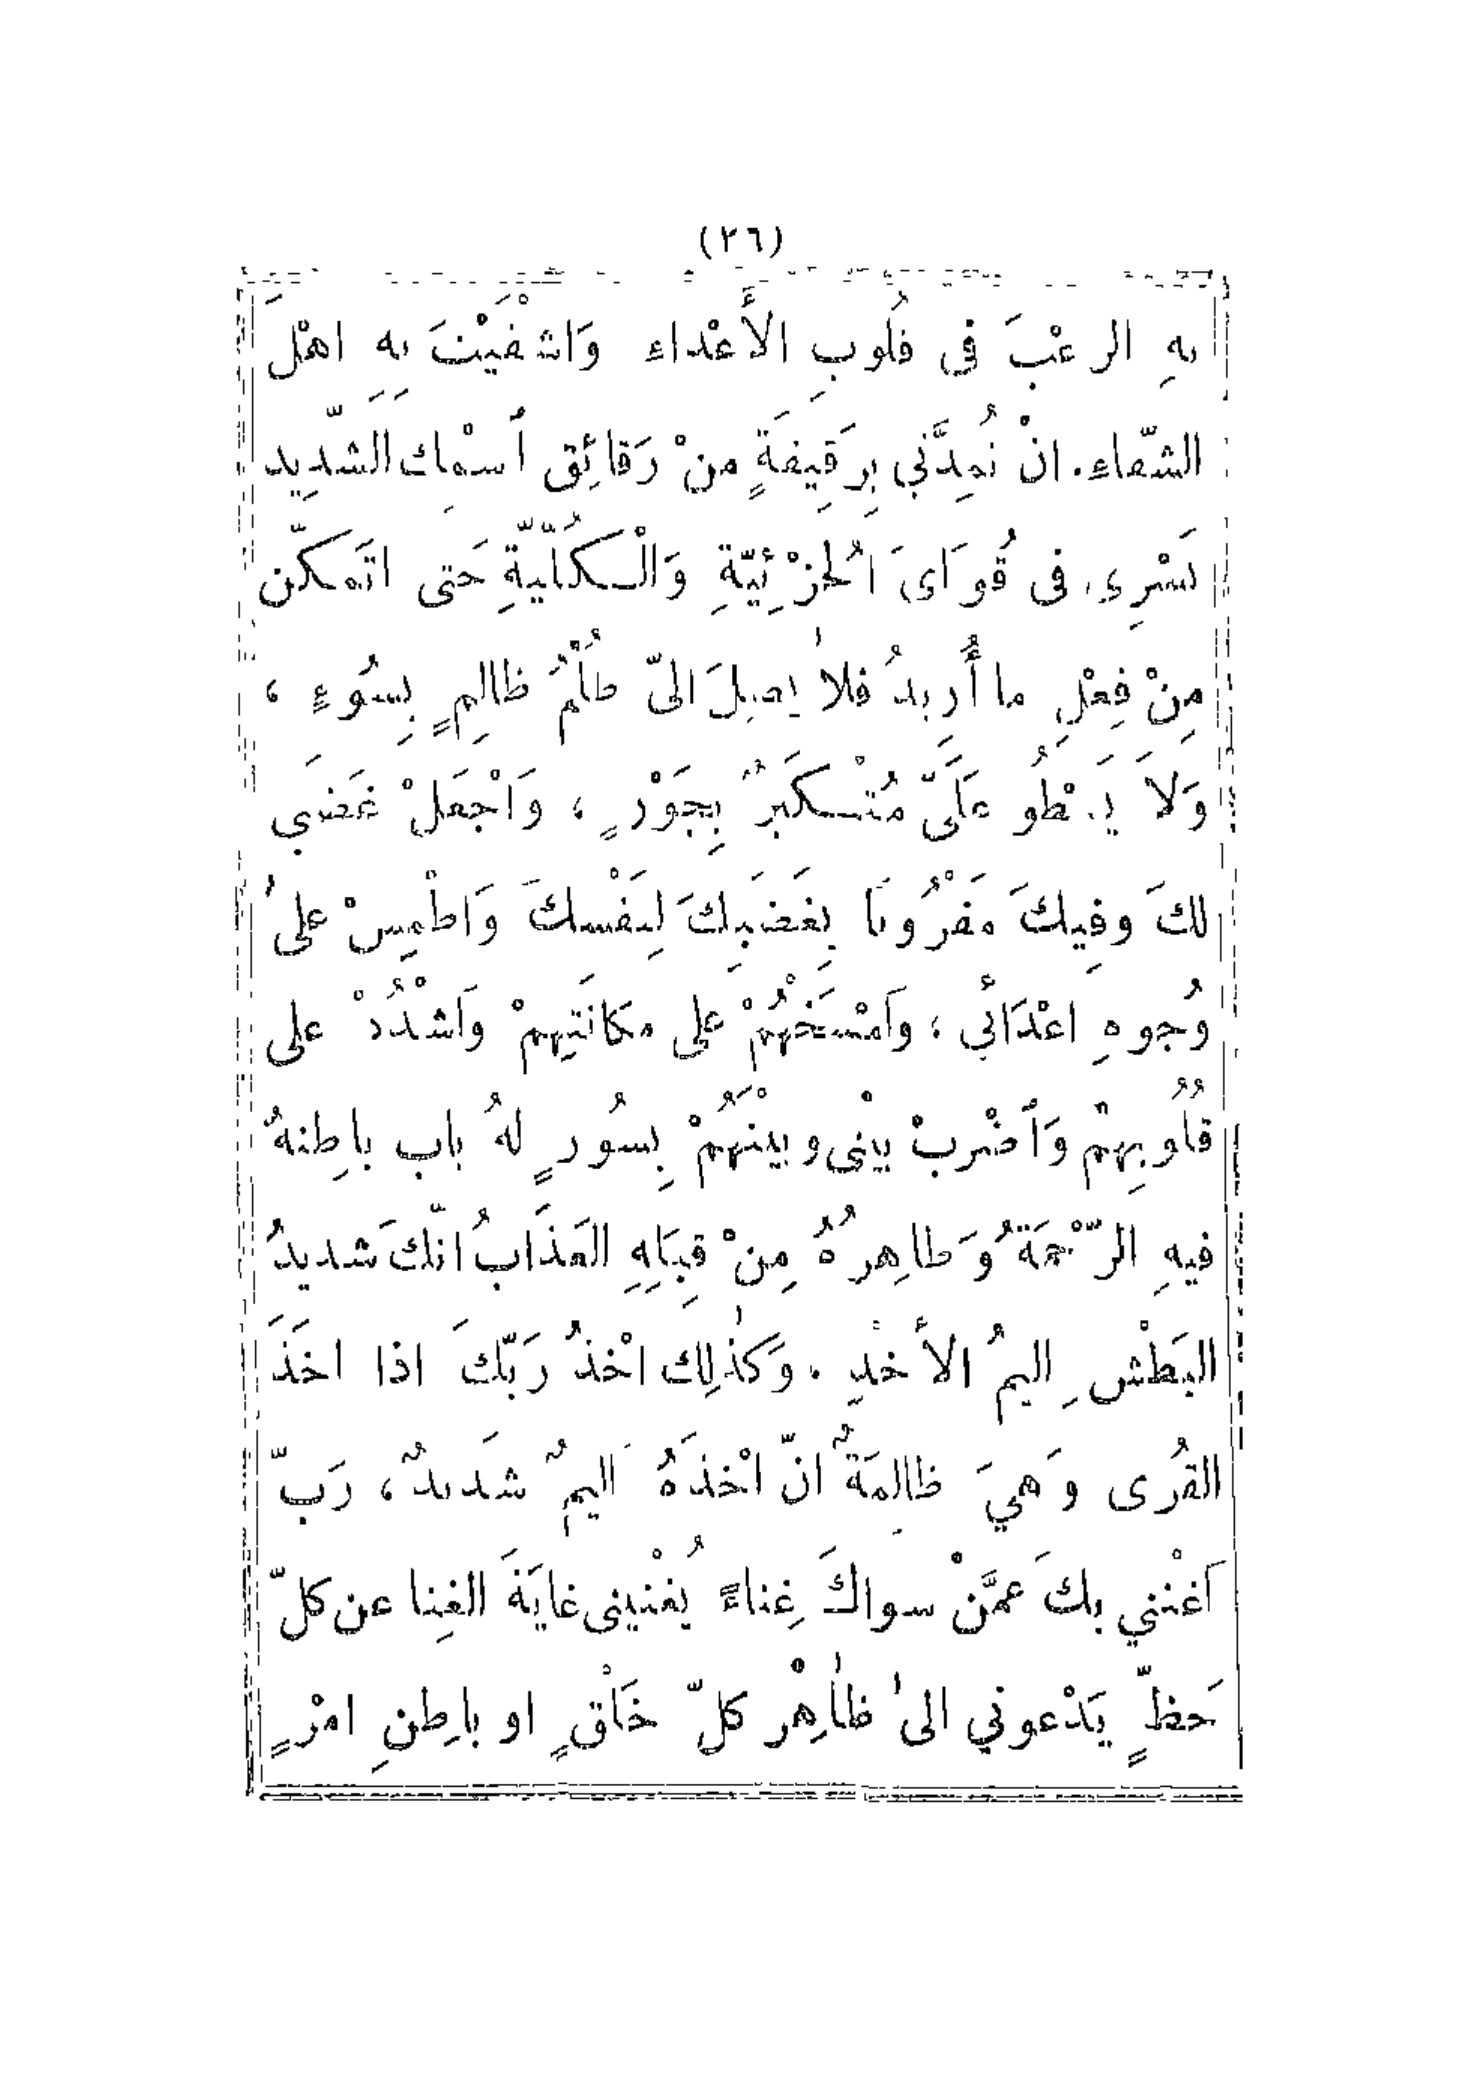 (٢٦)
بهِ الرعْبَ فى قُلوبِ الأَعْداءِ وَاشْقَيْتَ بِهِ اهْلَ
الشّقاءِ. انْ تُمِدَّني بِرَقِيقَةٍ منْ رَقائِق أسمْاِك الَشّدِيد
تَسْرِى فى قُوَاىَ اُلجزْئِيّةِ وَالْـكُلّيّةِ حَتى اتَمكّن
مِنْ فِعْلِ ما أُرِيدُ فلاٰ يصِلَ الىّ ظُلْمُ ظالِمٍ بِسُوءٍ ،
وَلاَ يَسْطُو عَلَىَّ مُتْـكَبرٌ بِجَوْرٍ ، وَاَجْعَلْ غَضَبي
لكَ وفِيكَ مَقْرُوناً بِغَضَبِكَ لِنَفْسكَ وَاطْمِسْ علىُ
وُجوهِ اعْدَائي ، وَاَمْسَخْهُمْ على مكانَتِهِمْ وَاَشْدُدْ على
قُلُوبِهِمْ وَأضْربْ بيْنى وبيْنَهُمْ بِسُورٍ لهُ باب باطِنهُ
فيهِ الرّحْمَةُ وَظاهِرُهُ مِنْ قِبَلِهِ العَذَابُ انّكَ شديدُ
البَطْشِ اليمُ الأَخْذِ . وَكَذٰلِك اخْذُ رَبّكَ اذا اخَذَ
القُرى وَهيَ ظالِمَةٌ انّ اخْذَهُ اَليمٌ شَديدٌ ، رَبّ
اَغْنني بكَ عمَّنْ سواكَ غِناءً يُغْنينى غايَةَ الغِنا عن كلّ
حَظّ ٍ يَدْعوني الىٰ ظاٰهِرْ كلّ خَلْقٍ او باطِنِ امْرٍ